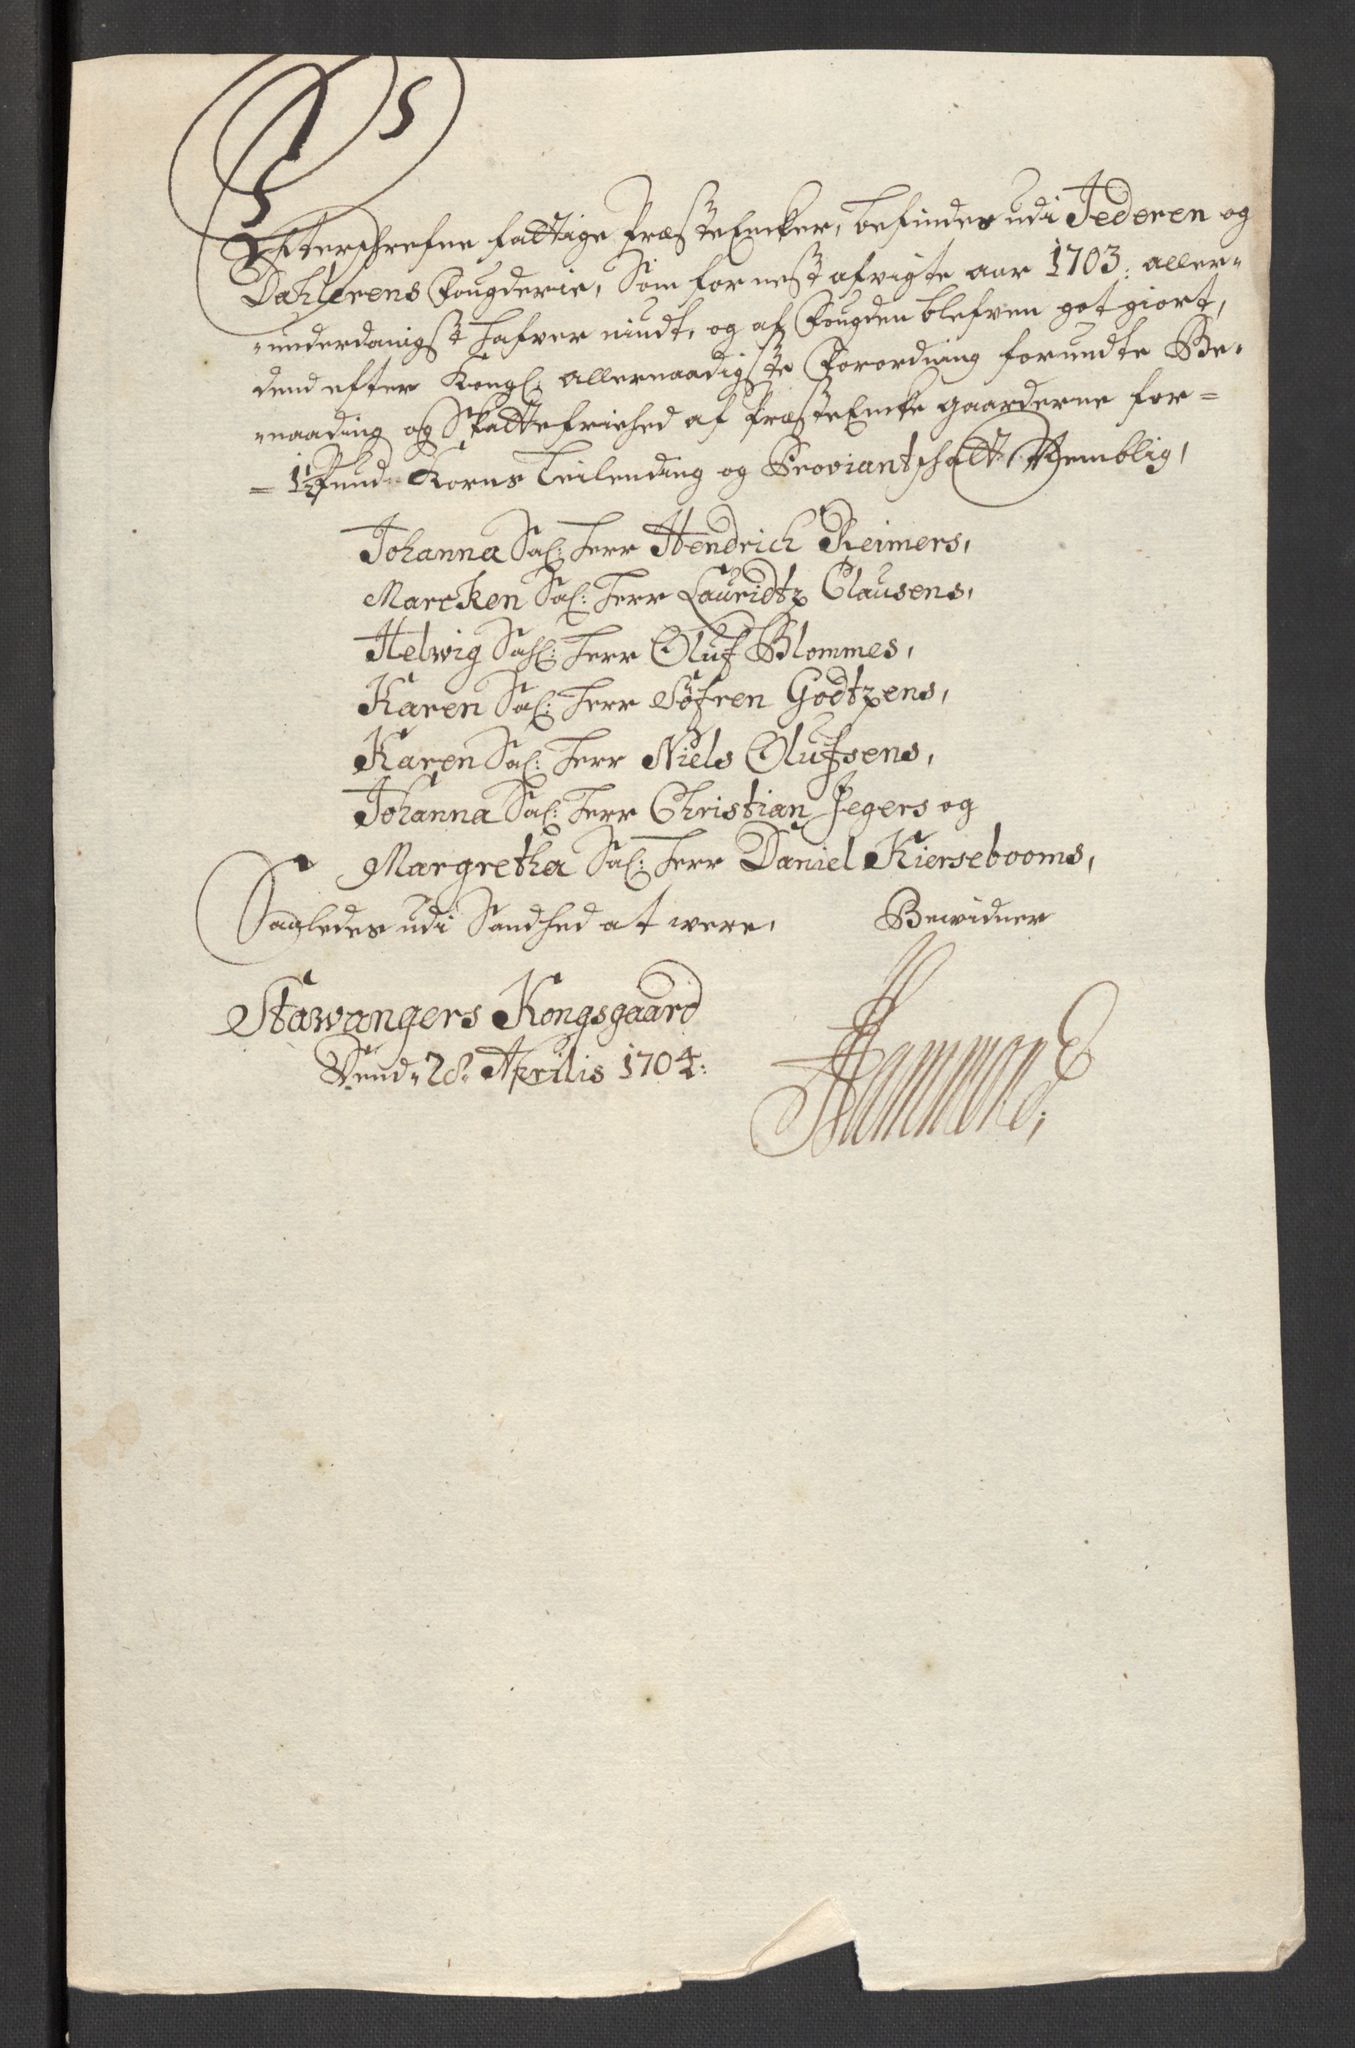 Efterschrefne fattige PræsteEncker, befindes udi Jederen og
Dahlerens Fougderie, Som for nest afvigte aar 1703: aller-
underdanigst hafver niudt, og af Fougden blefven got giort,
dend efter Kongl: allernaadigste Forordning forundte Be-
naading og Skattefriehed af PræsteEncke gaarderne for-
1½ Pund Korns Leilending og Proviantschatt, Nemblig,
Johanna Sal: Herr Hendrich Reimers,
Mareken Sal: Herr Lauridtz Clausens,
Helwig Sahl: Herr Oluf Blommes,
Karen Sal: Herr Söfren Godtzens,
Karen Sal: Herr Niels Olufsens,
Johanna Sal: Herr Christian Jegers og
Margretha Sal: Herr Daniel Kiersebooms,
Saaledes udi Sandhed at were, Bewidner
Stawangers Kongsgaard
Dend 28 Aprilis 1704:
Hammond;